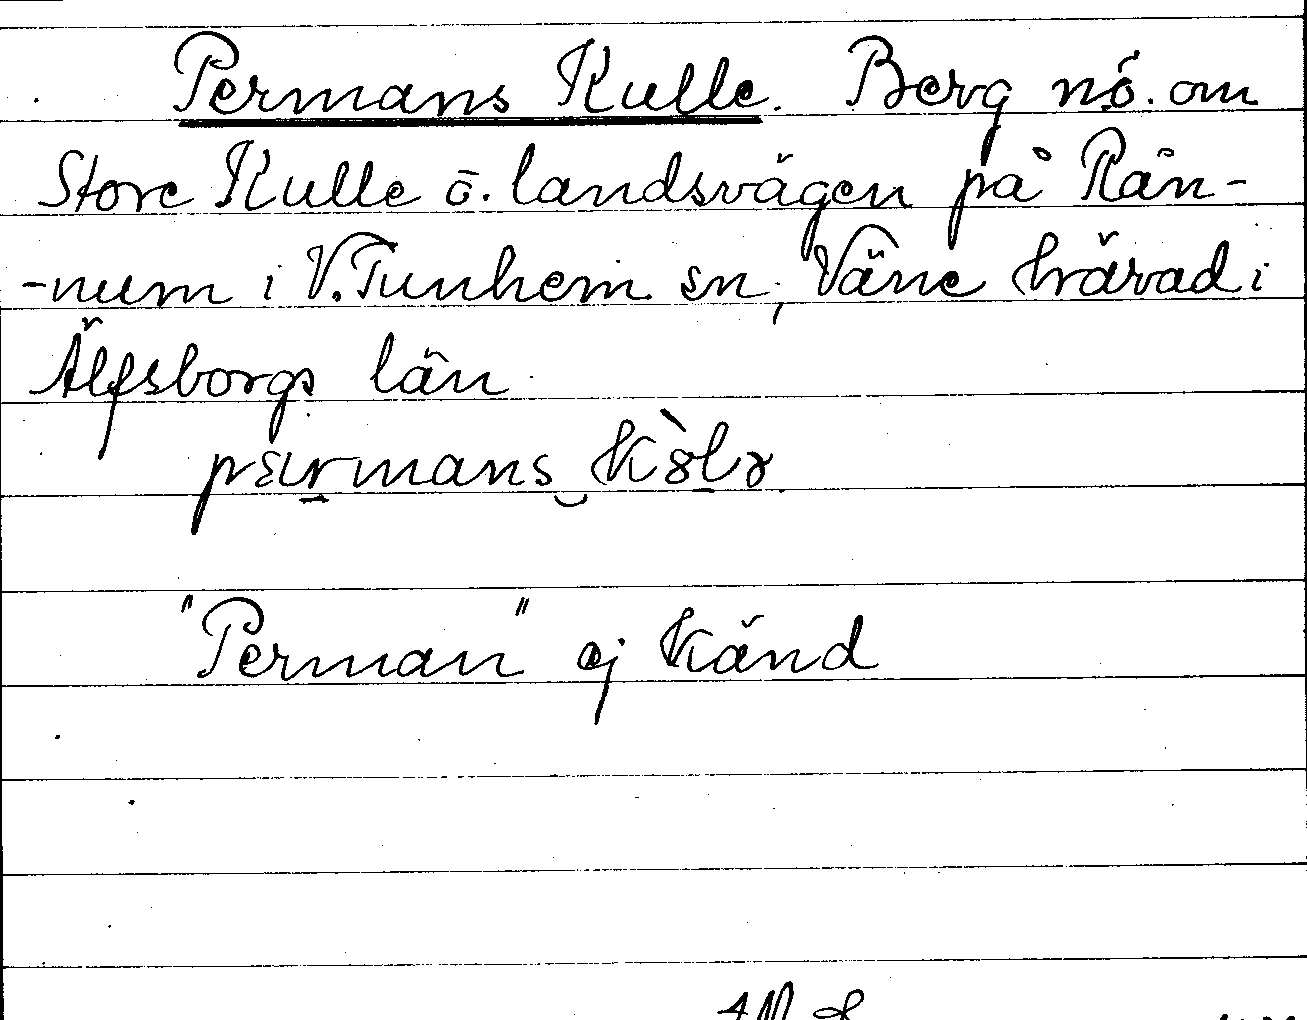 Permans Kulle. Berg nö. om
Store Kulle ö. landsvägen på Rån-
-num i V. Tunhem sn, Väne härad i
Älfsborgs län
"Perman" ej känd